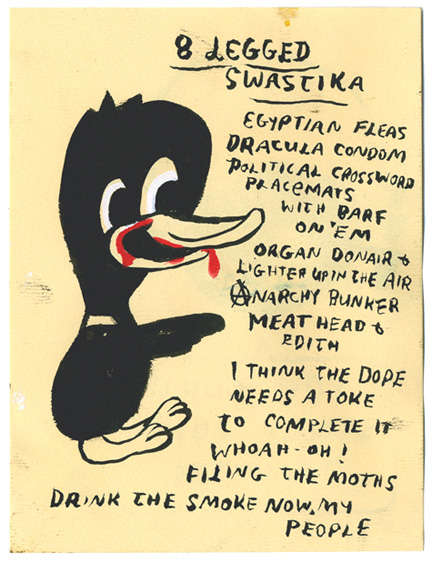 8 LEGGED
SWASTIKA
EGYPTIAN FLEAS
DRACULA CONDOM
POLITICAL CROSSWORD
PLACEMATS
WITH BARF
ON 'EM
ORGAN DONAIR &
LIGHTER UP IN THE AIR
ANARCHY BUNKER
MEAT HEAD &
EDITH
I THINK THE DOPE
NEEDS A TOKE
TO COMPLETE IT
WHOAH-OH!
FILING THE MOTHS
DRINK THE SMOKE NOW, MY
PEOPLE